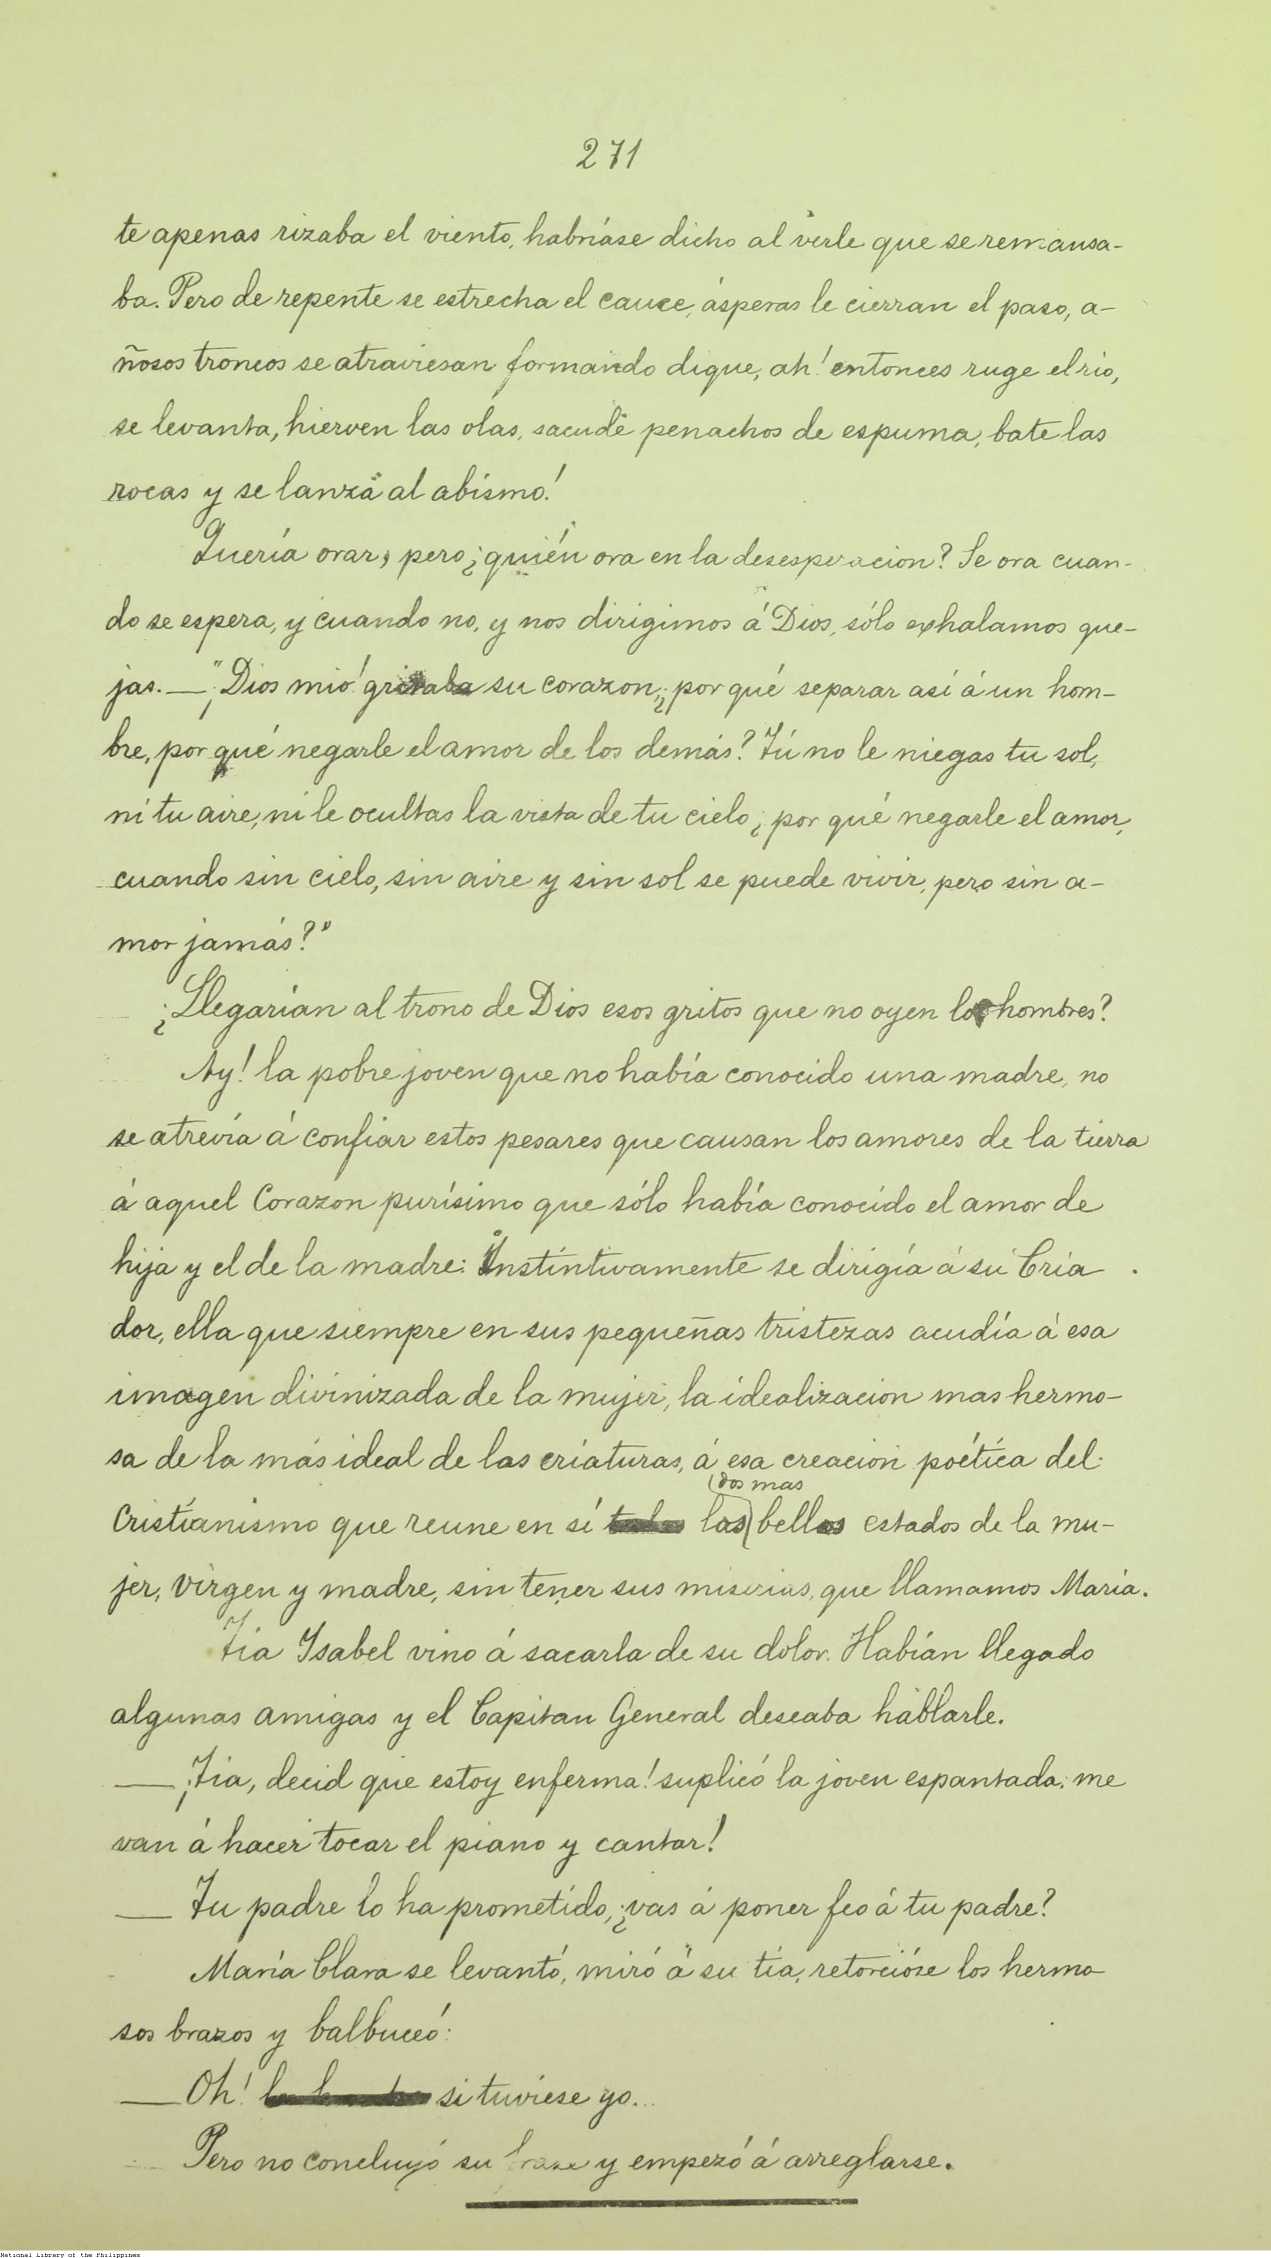 271
te apenas rizaba el viento, habríase dicho al verle que se remansa-
ba. Pero de repente se estrecha el cauce, ásperas le cierran el paso, a-
ñosos troncos se atraviesan formando dique, ah! entonces ruge el rio,
se levanta, hierven las olas, sacude penachos de espuma, bate las
rocas y se lanza al abismo!
Quería orar, pero ¿quién ora en la desesperacion? Se ora cuan-
do se espera, y cuando no, y nos dirigimos á Dios, sólo exhalamos que-
jas. — "¡Dios mio! gritaba su corazon, ¿por qué separar así á un hom-
bre, por qué negarle el amor de los demás? Tú no le niegas tu sol,
ni tu aire, ni le ocultas la vista de tu cielo ¿por qué negarle el amor,
cuando sin cielo, sin aire y sin sol se puede vivir, pero sin a-
mor jamás?"
¿Llegarían al trono de Dios esos gritos que no oyen los hombres?
Ay! la pobre joven que no había conocido una madre, no
se atrevía á confiar estos pesares que causan los amores de la tierra
á aquel Corazon purísimo que sólo había conocido el amor de
hija y el de la madre: Instintivamente se dirigía á su Cria
dor, ella que siempre en sus pequeñas tristezas acudía á esa
imagen divinizada de la mujer, la idealizacion mas hermo-
sa de la más ideal de las criaturas, á esa creacion poética del
dos mas
Cristianismo que reune en sí los bellos estados de la mu-
jer, virgen y madre, sin tener sus miserias, que llamamos María.
Tía Isabel vino á sacarla de su dolor. Habían llegado
algunas amigas y el Capitan General deseaba hablarle.
— ¡Tia, decid que estoy enferma! suplicó la joven espantada; me
van á hacer tocar el piano y cantar!
— Tu padre lo ha prometido, ¿vas á poner feo á tu padre?
María Clara se levantó, miró á su tía, retorcióse los hermo
sos brazos y balbuceó:
— Oh! si tuviese yo...
Pero no concluyó su frase y empezó á arreglarse.
National Library of the Philippines